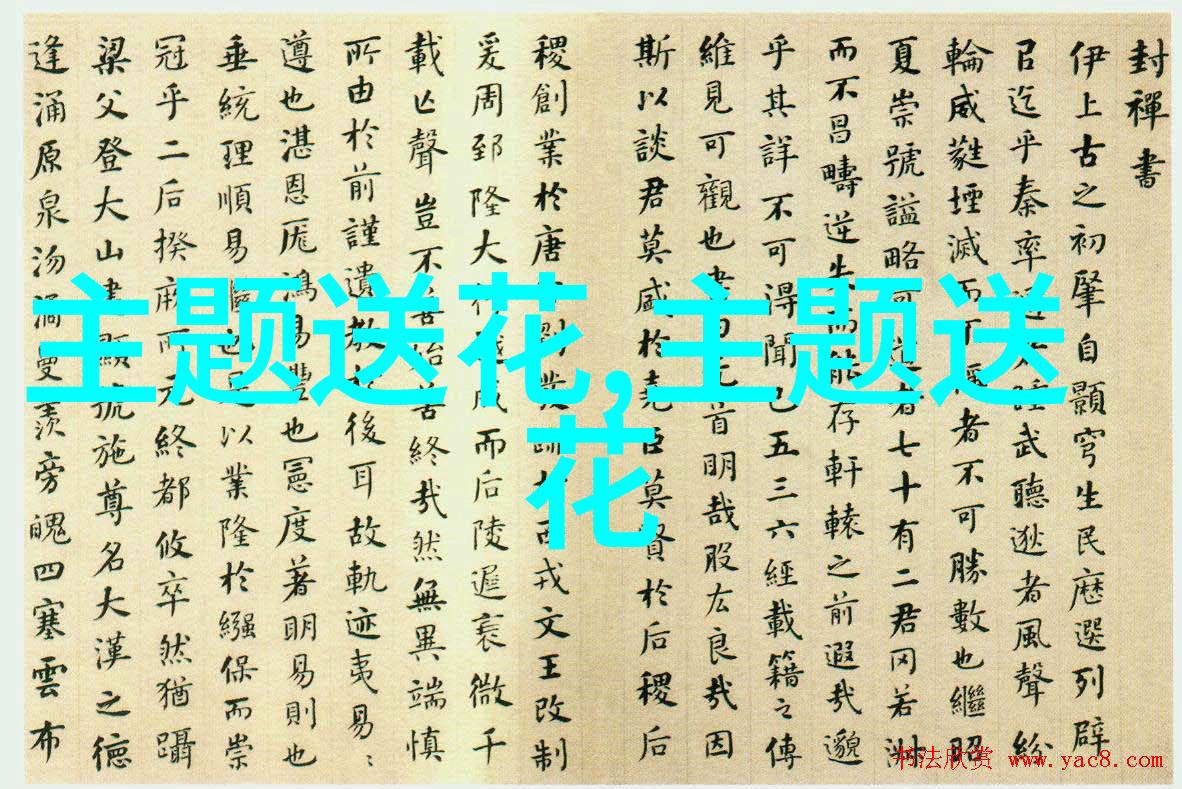 封禪書
伊上古之初肇自顥穹生民歷選列辟
以迄乎秦率
武聽逖者風聲紛
輪威蕤堙滅而不
者不可勝數也繼昭
夏崇號謚略可道者七十有二君罔若淑
而不昌疇逆失而能存軒轅之前遐哉邈
乎其詳不可得聞已五三六經載籍之傳
維見可觀也書曰元首明哉股肱良哉因
斯以談君莫盛於堯臣莫賢於后稷后
稷創業於唐
西戎文王改制
爰周郅隆大行越成而后陵遲衰微千
載亡聲豈不善始善終哉然無異端慎
所由於前謹遺教於後耳故軌迹夷易
遵也湛恩厖鴻易豐也憲度著明易則也
垂統理順易繼也是以業隆於繈保而崇
冠乎二后揆厥所元終都攸卒然猶躡
梁父登大山建顯號施尊名大漢之德
逢涌原泉沕潏曼羨旁魄四塞雲布
主题送花,主题送
花
书法欣赏 www.yac8.com